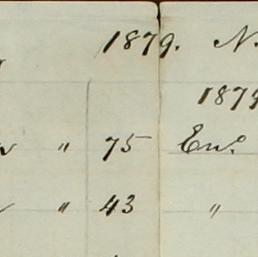 1879. N.
1879
" 75 Env.
" 43 "